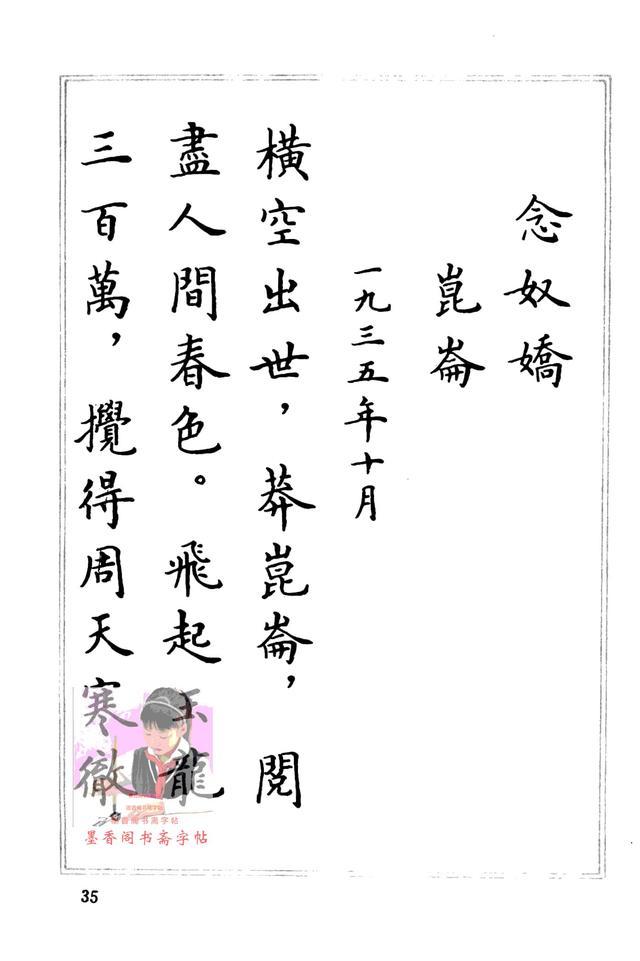 念奴嬌
崑崙
一九三五年十月
橫空出世，莽崑崙，閱
盡人間春色。飛起玉龍
三百萬，攪得周天寒徹。
墨香阁书斋字帖
墨香阁书斋字帖
35